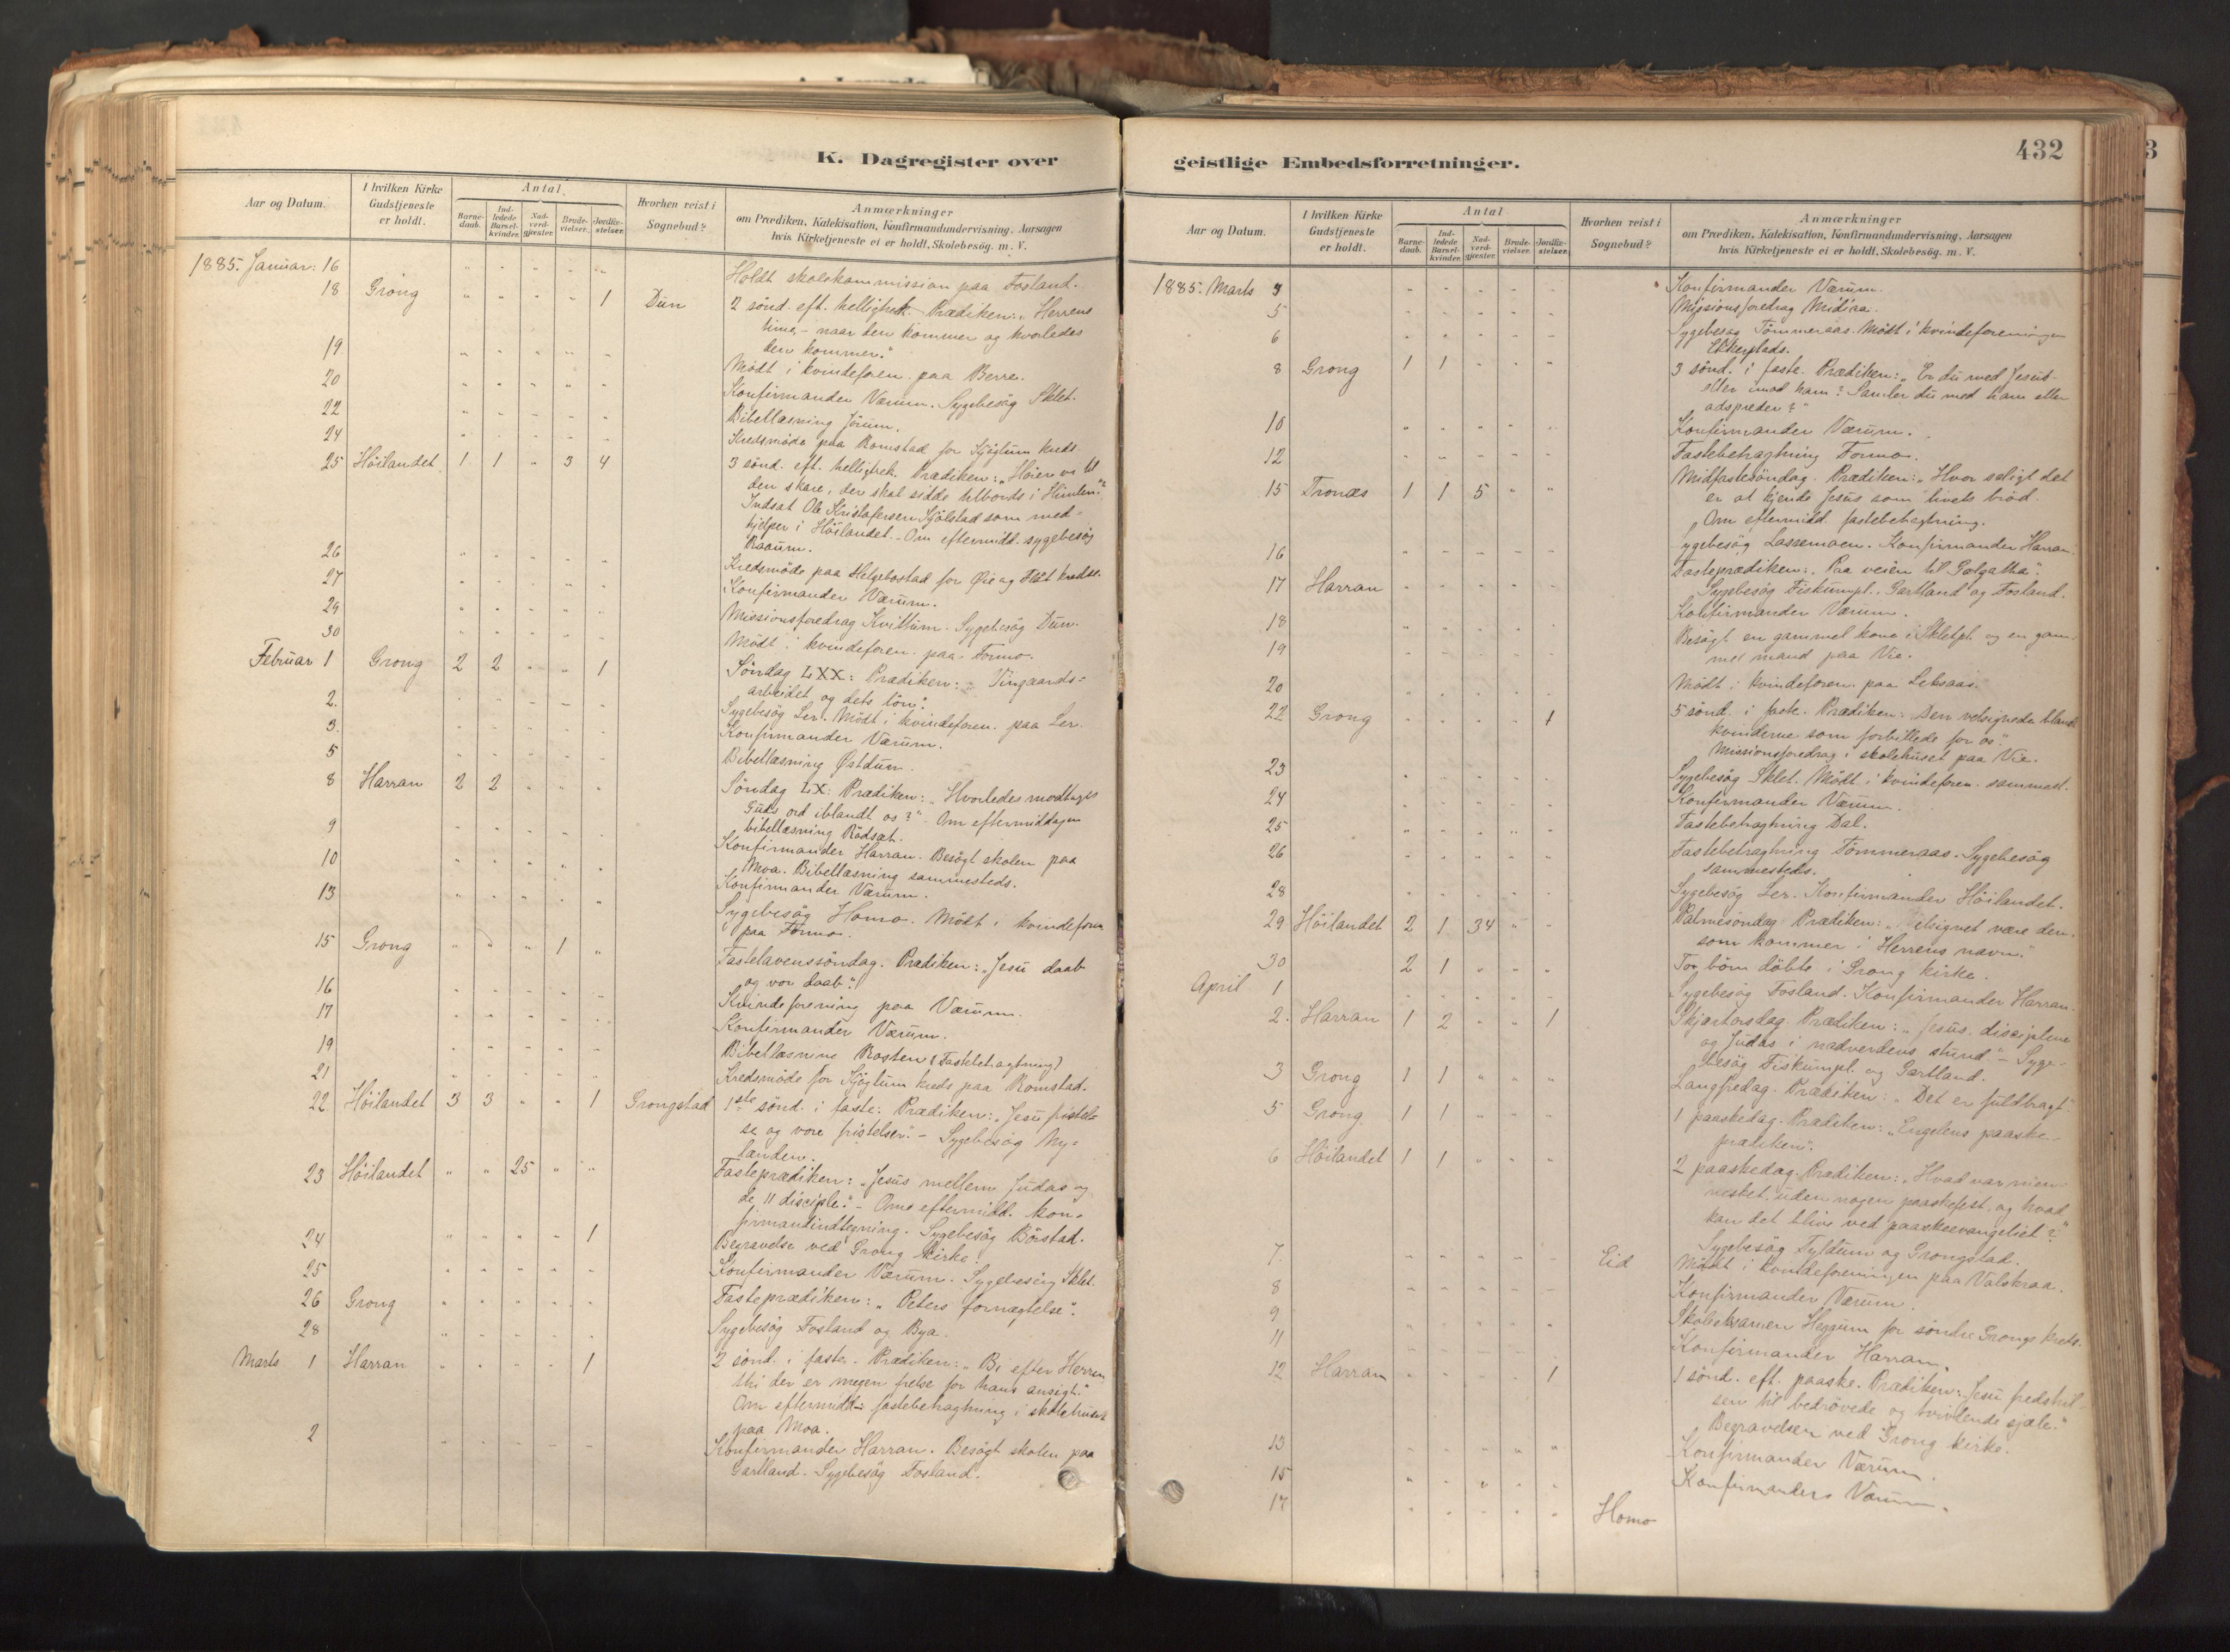 K. Dagregister over
Aar og Datum.
I hvilken Kirke Gudstjeneste er holdt.
Antal.
Barne-daab.
Ind-ledede Barsel-kvinder.
Nad-verd-gjæster.
Brude-vielser.
Jordfæ-stelser.
Hvorhen reist i Sognebud?
Anmærkninger
om Prædiken, Katekisation, Konfirmandundervisning, Aarsagen
hvis Kirketjeneste ei er holdt, Skolebesøg. m. V.
1885. Januar: 16 Holdt skolekommission paa Fosland.
18 Grong " " " " 1 Dun 2 sönd. eft. helligtrek. Prædiken: "Herrens
time, - naar den kommer og hvorledes
den kommer."
19 Mödt i kvindeforen. paa Berre.
20 Konfirmander Værum. Sygebesög Sklet.
22 Bibellæsning Jörum.
24 Kredsmöde paa Romstad for Kjöglum kreds.
25 Höilandet 1 1 " 3 4 3 sönd. eft. helligtrek. Prædiken: "Hörer vi til
den skare, der skal sidde tilbords i Himlen?"
Indsat Ole Kristofersen Kjölstad som med-
hjelper i Höilandet. - Om eftermidd. sygebesög
Raaum.
26 Kredsmöde paa Helgebostad for Øie og Flåt kredse.
27 Konfirmander Værum.
29 Missionsforedrag Kvittum. Sygebesög Dun.
30 Mödt i kvindeforen. paa Formo.
Februar 1 Grong 2 2 " " 1 Söndag LXX: Prædiken: "Vingaards-
arbeidet og dets lön."
2. Sygebesög Ler. Mödt i kvindeforen. paa Ler.
3. Konfirmander Værum.
5 Bibellæsning Østdun.
8 Harran 2 2 " " " Söndag LX: Prædiken: "Hvorledes modtages
Guds ord iblandt os?" - Om eftermiddagen
bibellæsning Rödsæt.
9 Konfirmander Harran. Besögt skolen paa
Moa. Bibellæsning sammesteds.
10 Konfirmander Værum.
13 Sygebesög Homo. Mödt i kvindeforen
paa Formo.
15 Grong " " " 1 " Fastelavenssöndag. Prædiken: "Jesu daab
og vor daab."
16 Kvindeforening paa Værum.
17 Konfirmander Værum.
19 Bibellæsning Rosten (Fastebetragtning)
21 Kredsmöde for Kjöglum kreds paa Romstad.
22 Höilandet 3 3 " " 1 Grongstad 1ste sönd. i faste. Prædiken: "Jesu fristel-
se og vore fristelser." - Sygebesög Ny-
landen.
23 Höilandet " " 25 " " Fasteprædiken: "Jesus mellem Judas og
de 11 disciple." - Om eftermidd. kon-
firmandindtegning. Sygebesög Börstad.
24 " " " " 1 Begravelse ved Grong kirke.
25 Konfirmander Værum. Sygebesög Sklet.
26 Grong Fasteprædiken: "Peters fornægtelse".
28 Sygebesög Fosland og Bya.
Marts 1 Harran " " " " 1 2 sönd. i faste. Prædiken: "Bi efter Herren
thi der er megen frelse for hans ansigt."
Om eftermidd. fastebetragtning i skolehuset
paa Moa.
2 Konfirmander Harran. Besögt skolen paa
Gartland. Sygebesög Fosland.
geistlige Embedsforretninger.
432
Aar og Datum.
I hvilken Kirke Gudstjeneste er holdt.
Antal
Barne-daab.
Ind-ledede Barsel-kvinder.
Nad-verd-gjæster.
Brude-vielser.
Jordfæ-stelser.
Hvorhen reist i Sognebud?
Anmærkninger
om Prædiken, Katekisation, Konfirmandundervisning, Aarsagen
hvis Kirketjeneste ei er holdt, Skolebesøg. m. V.
1885. Marts Konfirmander Værum.
5 Missionsforedrag Midiaa.
6 Sygebesög Tömmeraas. Mödt i kvindeforeningen
Ekkerplads.
8 Grong 1 1 " " " 3 sönd. i faste. Prædiken: "Er du med Jesus
eller imod ham? Samler du med ham eller
adspreder?"
10 Konfirmander Værum.
12 Fastebetragtning Formo.
15 Tronæs 1 1 5 " " Midfastesöndag. Prædiken: "Hvor saligt det
er at kjende Jesus som livets bröd.
Om eftermidd. fastebetragtning.
16 Sygebesög Lassemoen. Konfirmander Harran.
17 Harran Fasteprædiken: "Paa veien til Golgatha".
Sygebesög Fiskumpl. Gartland og Fosland.
18 Konfirmander Værum.
19 Besögt en gammel kone i Skletpl. og en gam-
mel mand paa Vie.
20 Mödt i kvindeforen. paa Leksaas.
22 Grong " " " " 1 5 sönd. i faste. Prædiken: Den velsignede blandt
kvinderne som forbillede for os".
Missionsforedrag i skolehuset paa Vie.
23 Sygebesög Sklet. Mödt i kvindeforen. sammest.
24 Konfirmander Værum.
25 Fastebetragtning Dal.
26 Fastebetragtning Tömmeraas. Sygebesög
sammesteds.
28 Sygebesög Ler. Konfirmander Höilandet.
29 Höilandet 2 1 34 " " Palmesöndag. Prædiken: "Velsignet være den
som kommer i Herrens navn."
30 2 1 " " " To börn döbte i Grong kirke.
April 1 Sygebesög Fosland. Konfirmander Harran.
2. Harran 1 2 " " 1 Skjærtorsdag. Prædiken: "Jesus, disciplene
og Judas i nadverdens stund" - Syge-
besög Fiskumpl. og Gartland.
3 Grong 1 1 " " " Langfredag. Prædiken: "Det er fuldbragt."
5 Grong 1 1 " " " 1 paaskedag. Prædiken: "Engelens paaske-
prædiken."
6 Höilandet 1 1 " " " 2 paaskedag. Prædiken: "Hvad var men-
nesket uden nogen paaskefest, og hvad
kan det blive ved paaskeevangeliet?"
Sygebesög Fyldum og Grongstad.
7. Eid Mödt i kvindeforeningen paa Valskraa.
8 Konfirmander Værum.
9 Skoleeksamen Heggum for söndre Grongs kreds.
11 Konfirmander Harran.
12 Harran " " " " 1 1 sönd. eft. paaske. Prædiken: Jesu fredshil-
sen til bedrövede og tvivlende sjæle."
13 Begravelser ved Grong kirke.
Konfirmander Værum.
15 Konfirmanders Værum.
17 Homo